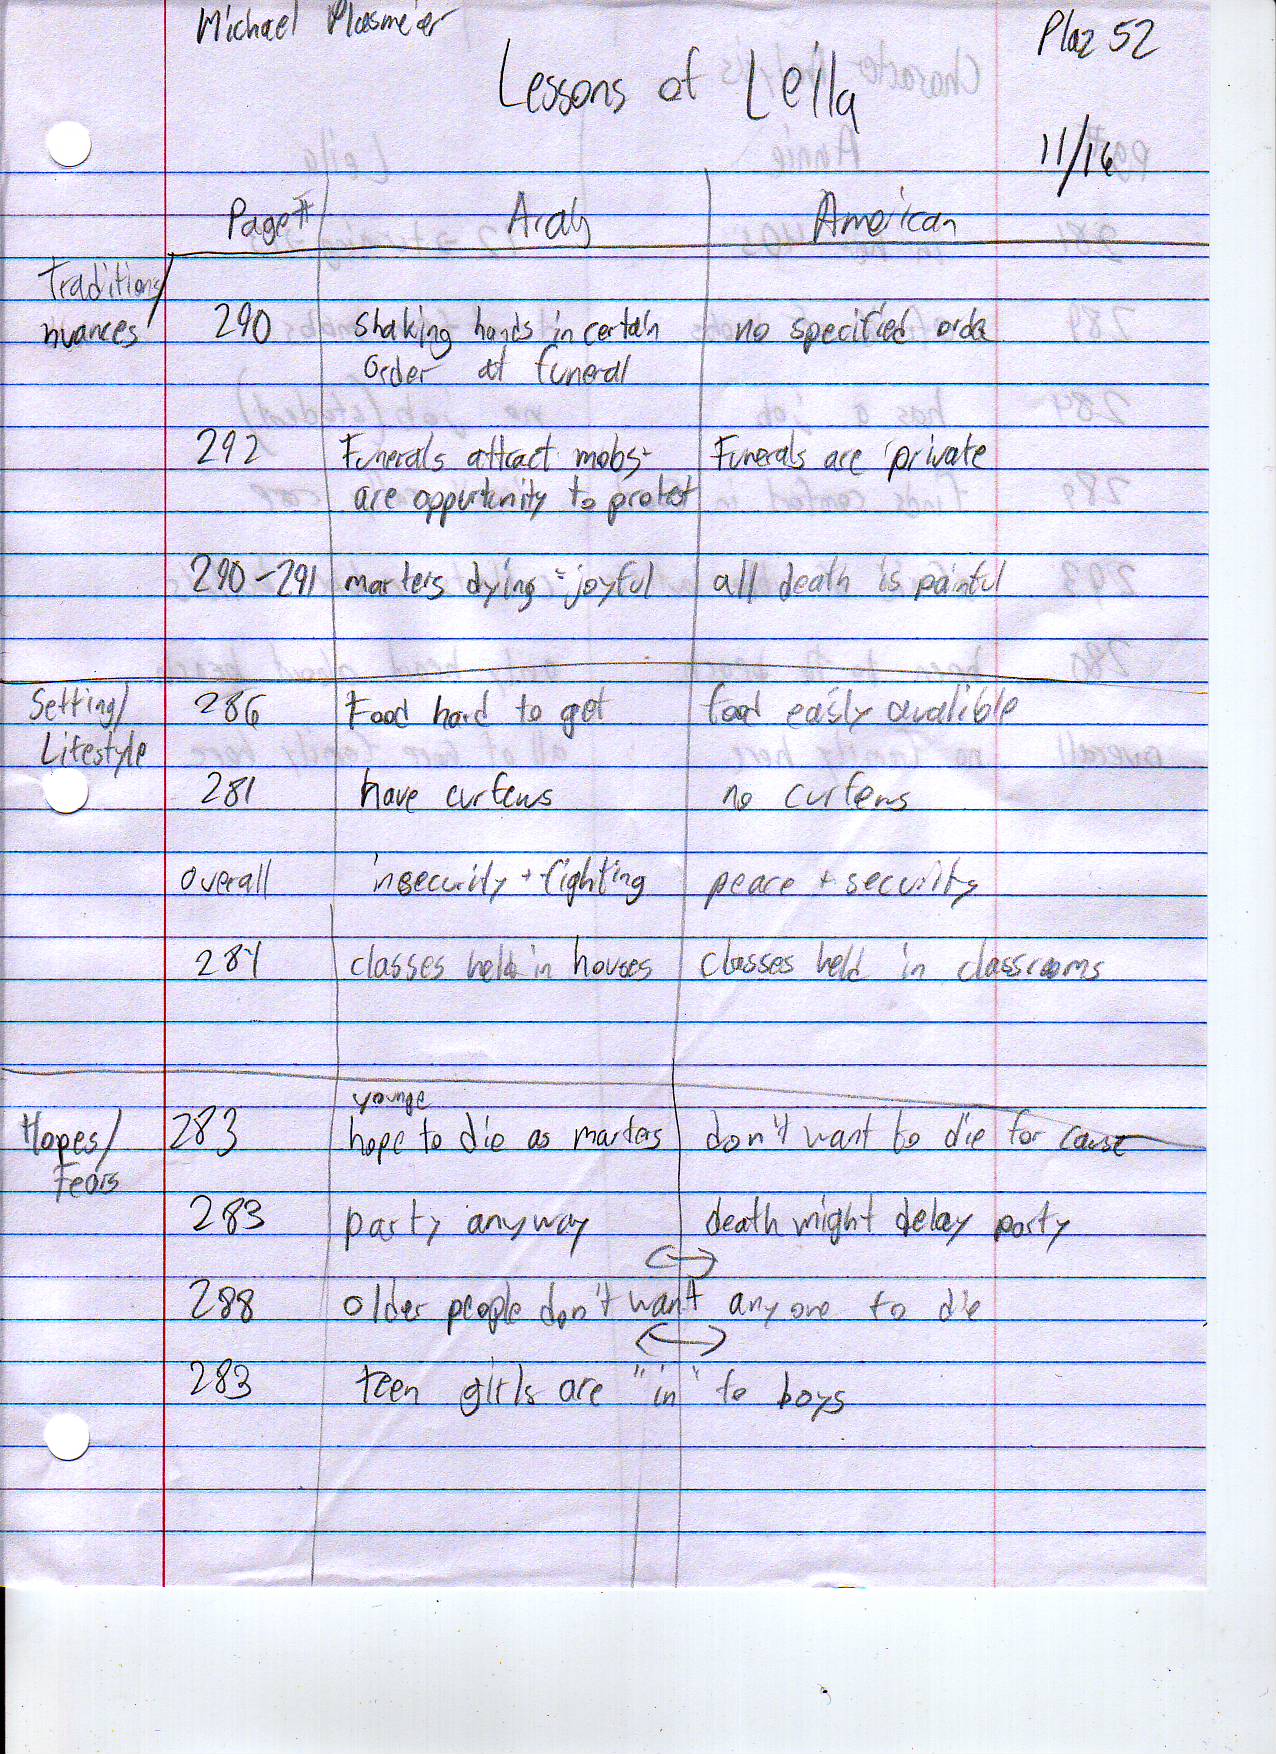 Michael Plasmeier
Plaz 52
Lessons of Leila
11/16
Page# Arab American
Traditions/
nuances
290 shaking hands in certain no specified orde
order at funeral
292 Funerals attract mobs- Funerals are private
are oppurtunity to protest
290-291 marters dying = joyful all death is painful
Setting/
Lifestyle
286 Food hard to get food easly avalible
281 have curfews no curfews
overall insecurity + fighting peace + security
281 classes held in houses classes held in classrooms
Hopes/
Fears
younge
283 hope to die as marters don't want to die for cause
283 party anyway death might delay party
288 older people don't want anyone to die
283 teen girls are "in" to boys